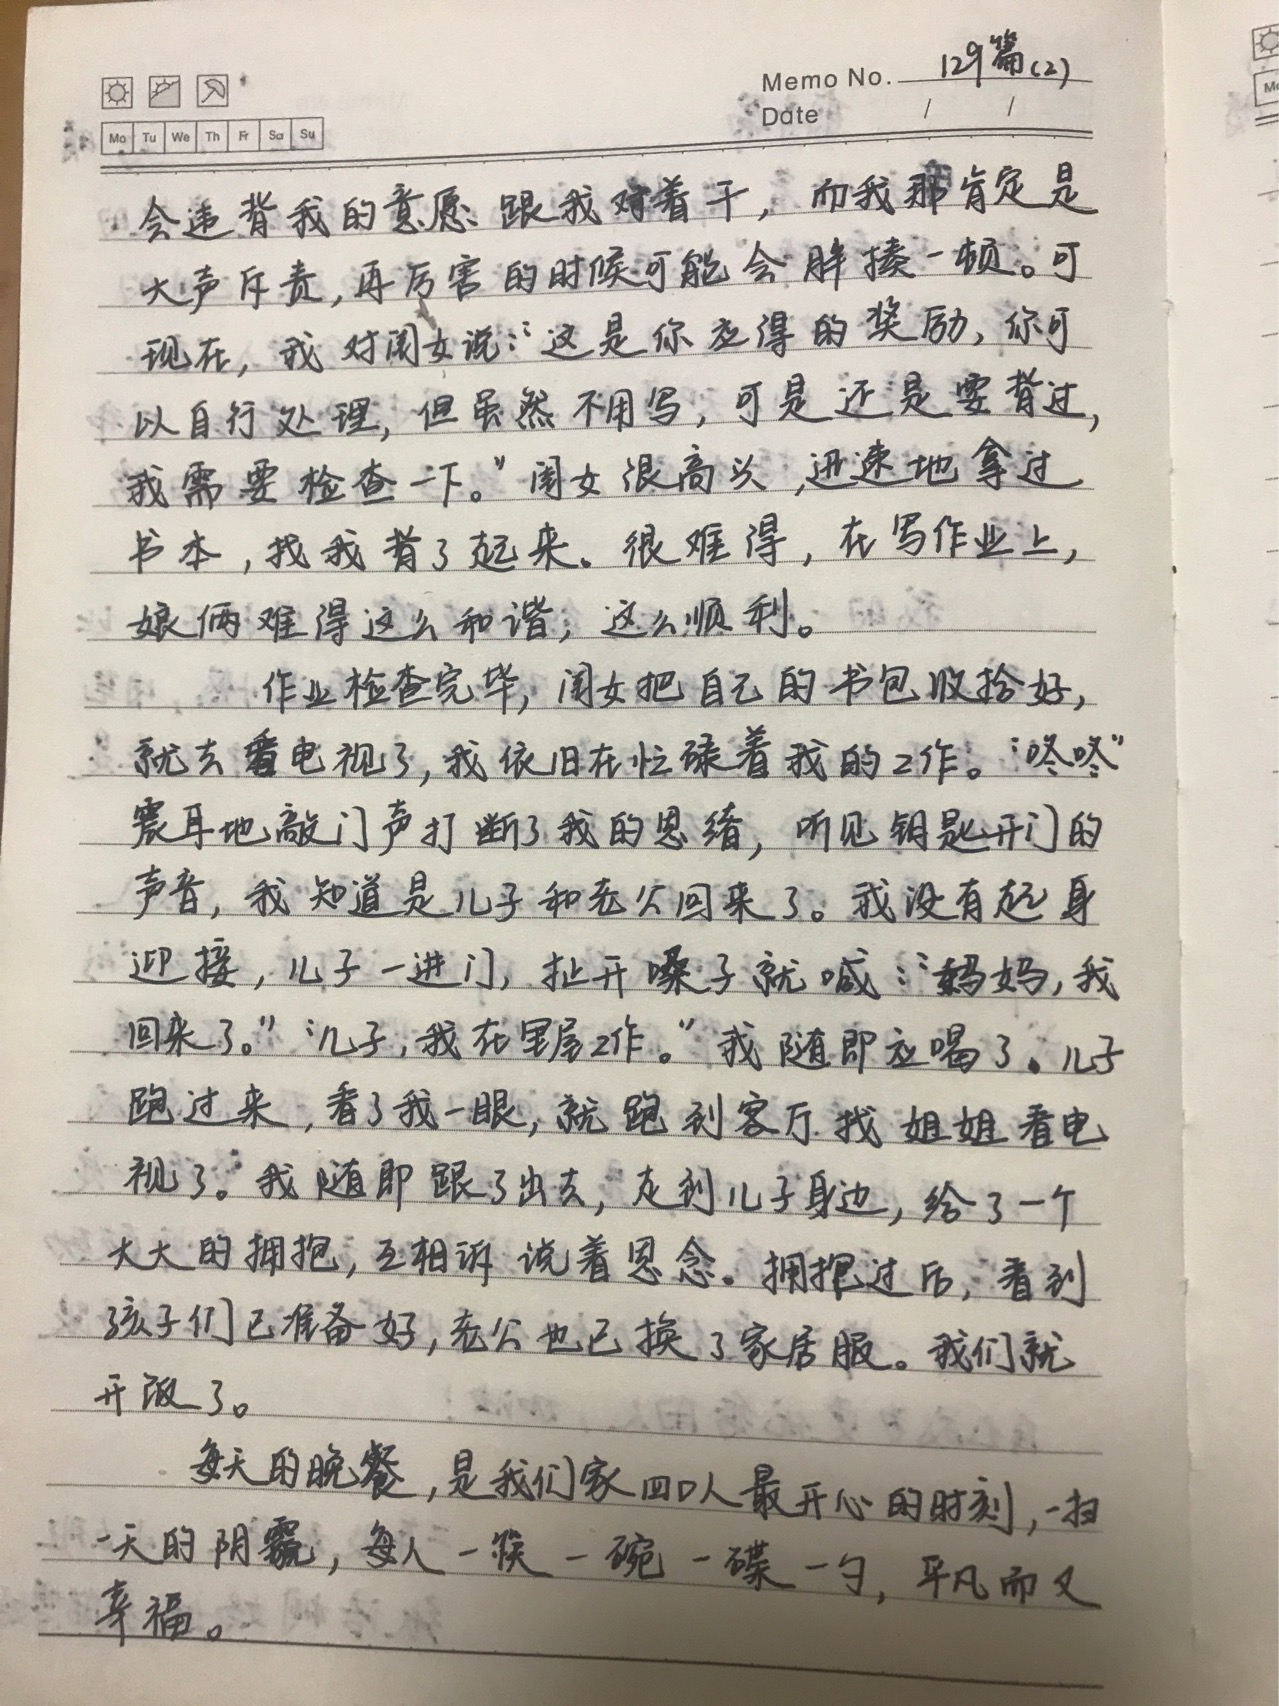 Memo No. 129篇(2)
Date / /
Mo Tu We Th Fr Sa Su
会违背我的意愿跟我对着干，而我那肯定是
大声斥责，再厉害的时候可能会胖揍一顿。可
现在，我对闺女说：“这是你应得的奖励，你可
以自行处理，但虽然不用写，可是还是要背过，
我需要检查一下。”闺女很高兴，迅速地拿过
书本，找我背了起来。很难得，在写作业上，
娘俩难得这么和谐；这么顺利。
作业检查完毕，闺女把自己的书包收拾好，
就去看电视了，我依旧在忙碌着我的工作。“咚咚”
震耳地敲门声打断了我的思绪，听见钥匙开门的
声音，我知道是儿子和老公回来了。我没有起身
迎接，儿子一进门，扯开嗓子就喊：“妈妈，我
回来了。”“儿子，我在里屋工作。”我随即应喝了。儿子
跑过来，看了我一眼，就跑到客厅找姐姐看电
视了。我随即跟了出去，走到儿子身边，给了一个
大大的拥抱，互相诉说着思念。拥抱过后，看到
孩子们已准备好，老公也已换了家居服。我们就
开饭了。
每天的晚餐，是我们家四口人最开心的时刻，一扫
一天的阴霾，每人一筷一碗一碟一勺，平凡而又
幸福。